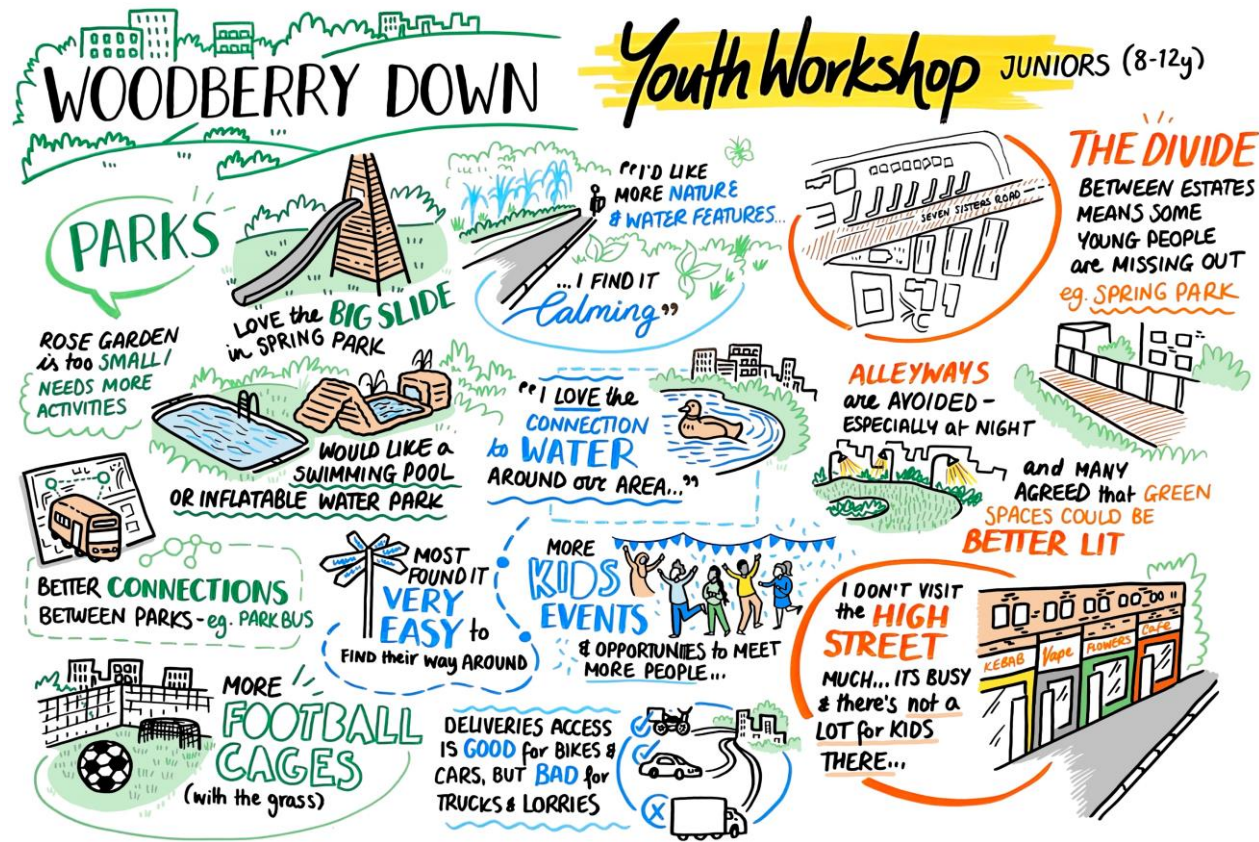 WOODBERRY DOWN
Youth Workshop JUNIORS (8-12y)
PARKS
LOVE the BIG SLIDE
in SPRING PARK
ROSE GARDEN
is too SMALL/
NEEDS MORE
ACTIVITIES
WOULD LIKE a
SWIMMING POOL
OR INFLATABLE WATER PARK
BETTER CONNECTIONS
BETWEEN PARKS - eg. PARK BUS
MORE
FOOTBALL
CAGES
(with the grass)
"I'D LIKE
MORE NATURE
& WATER FEATURES...
...I FIND IT
Calming"
"I LOVE the
CONNECTION
to WATER
AROUND our AREA..."
MOST
FOUND IT
VERY
EASY to
FIND their way AROUND
MORE
KIDS
EVENTS
& OPPORTUNITIES to MEET
MORE PEOPLE...
DELIVERIES ACCESS
IS GOOD for BIKES &
CARS, BUT BAD for
TRUCKS & LORRIES
SEVEN SISTERS ROAD
THE DIVIDE
BETWEEN ESTATES
MEANS SOME
YOUNG PEOPLE
are MISSING OUT
eg. SPRING PARK
ALLEYWAYS
are AVOIDED -
ESPECIALLY at NIGHT
and MANY
AGREED that GREEN
SPACES COULD BE
BETTER LIT
I DON'T VISIT
the HIGH
STREET
MUCH... ITS BUSY
& there's not a
LOT for KIDS
THERE...
KEBAB
Vape
FLOWERS
Cafe